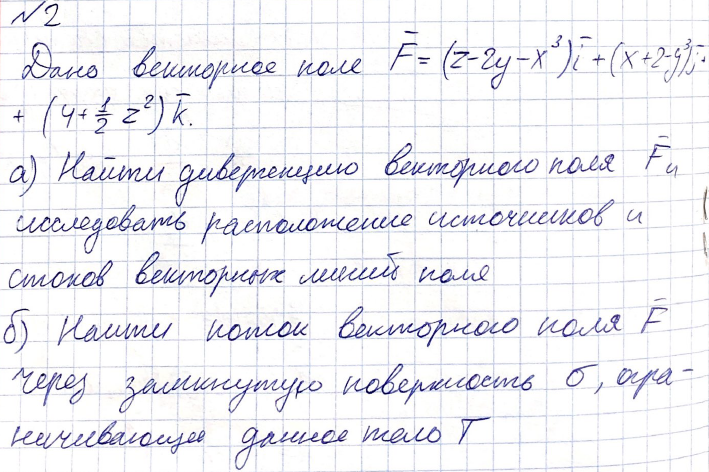 №2
Дано векторное поле F̄ = (z-2y-x³)i̅ + (x+2-y³)j̅+
+ (4+½ z²) k̅.
а) Найти дивергенцию векторного поля F̄ и
исследовать расположение источников и
стоков векторных линий поля
б) Найти поток векторного поля F̄
через замкнутую поверхность σ, огра-
ничивающее данное тело T